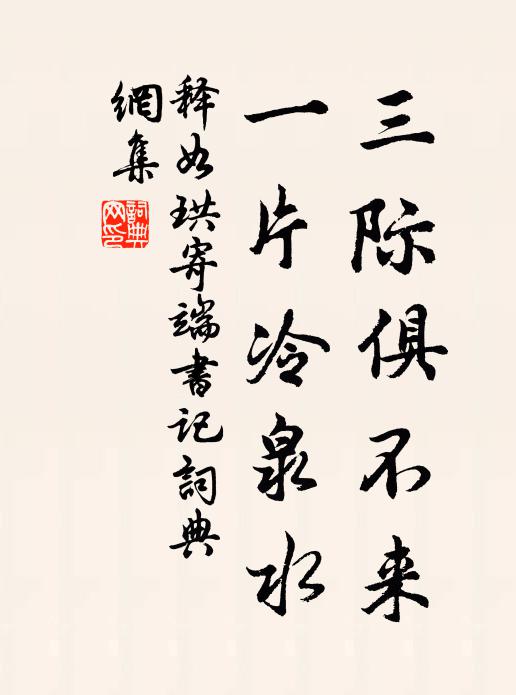 三际俱不来
一片冷泉水
释如珙寄端書记詞典
網集
詞典
网印